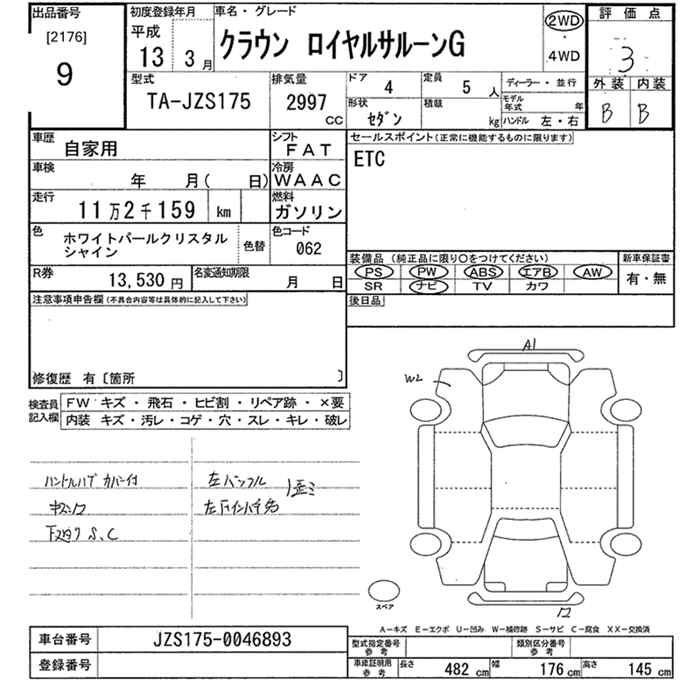 出品番号
[2176]
9
初度登録年月
平成
13 3月
車名・グレード
クラウン ロイヤルサルーンG
2WD
・
4WD
評価点
3
外装 内装
B B
型式
TA-JZS175
排気量
2997
CC
ドア
4
定員
5 人
形状
セダン
積載
kg
ディーラー・並行
モデル年式 年
ハンドル 左・右
車歴
自家用
シフト
FAT
車検
年 月( 日)
冷房
WAAC
走行
11万2千159 km
燃料
ガソリン
色
ホワイトパールクリスタル
シャイン
色替
色コード
062
R券
13,530 円
名変通知期限
月 日
セールスポイント(正常に機能するものに限ります)
ETC
装備品 (純正品に限り○をつけてください)
PS PW ABS エアB AW
SR ナビ TV カワ
新車保証書
有・無
後日品
注意事項申告欄(不具合内容等は具体的に記入して下さい)
修復歴 有〔箇所 〕
検査員
記入欄
FW キズ・飛石・ヒビ割・リペア跡・×要
内装 キズ・汚レ・コゲ・穴・スレ・キレ・破レ
A1
W2
スペア
A-キズ E-エクボ U-凹み W-補修跡 S-サビ C-腐食 XX-交換済
車台番号
JZS175-0046893
登録番号
型式指定番号
参考
類別区分番号
参考
車庫証明用
参考
長さ 482 cm
幅 176 cm
高さ 145 cm